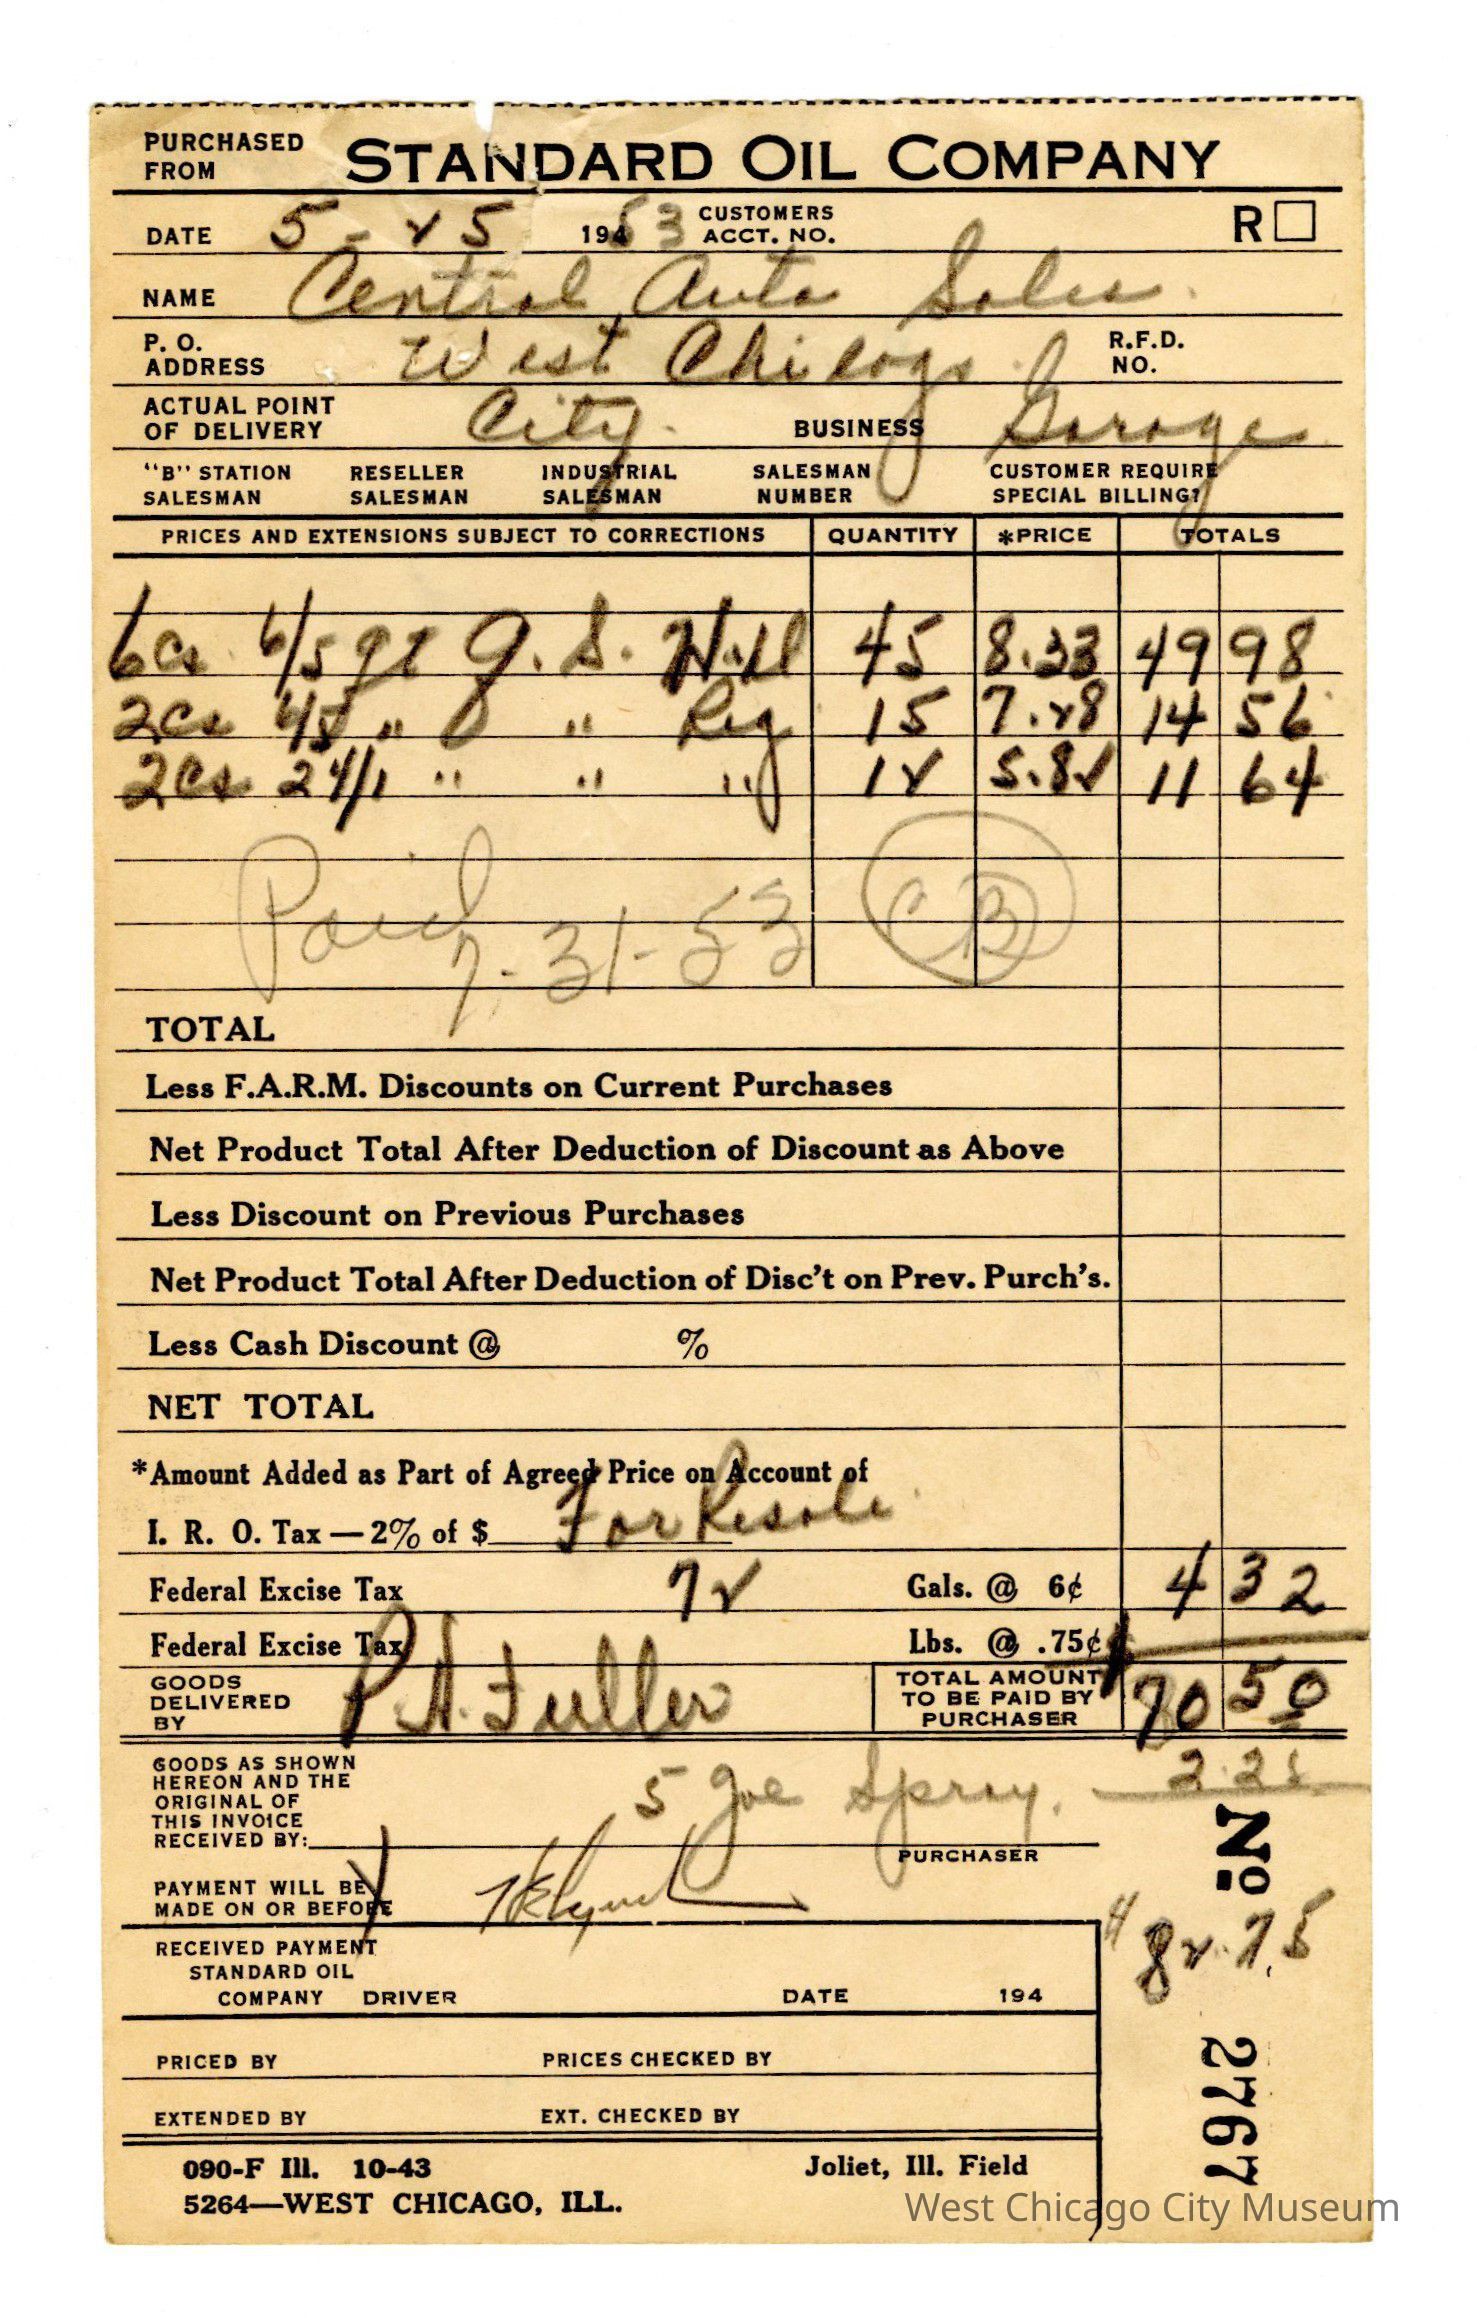 PURCHASED FROM STANDARD OIL COMPANY
DATE 5-25 1953 CUSTOMERS ACCT. NO. R
NAME Central Auto Sales
P. O. ADDRESS West Chicago R.F.D. NO.
ACTUAL POINT OF DELIVERY City BUSINESS Garage
"B" STATION SALESMAN RESELLER SALESMAN INDUSTRIAL SALESMAN SALESMAN NUMBER CUSTOMER REQUIRE SPECIAL BILLING?
PRICES AND EXTENSIONS SUBJECT TO CORRECTIONS QUANTITY *PRICE TOTALS
6cs 6/5 qt 45 8.33 49 98
2cs 6/5 " " Reg 15 7.28 14 56
2cs 24/1 " " " 12 5.82 11 64
Paid
7-31-53 CB
TOTAL
Less F.A.R.M. Discounts on Current Purchases
Net Product Total After Deduction of Discount as Above
Less Discount on Previous Purchases
Net Product Total After Deduction of Disc't on Prev. Purch's.
Less Cash Discount @ %
NET TOTAL
*Amount Added as Part of Agreed Price on Account of
I. R. O. Tax — 2% of $ For Resale
Federal Excise Tax 72 Gals. @ 6¢ 4 32
Federal Excise Tax Lbs. @ .75¢
GOODS DELIVERED BY P.H. Fuller TOTAL AMOUNT TO BE PAID BY PURCHASER 70 50
GOODS AS SHOWN
HEREON AND THE
ORIGINAL OF
THIS INVOICE
RECEIVED BY: 5 Spray. 2.25
PURCHASER
PAYMENT WILL BE
MADE ON OR BEFORE
RECEIVED PAYMENT
STANDARD OIL
COMPANY DRIVER DATE 194
82.75
PRICED BY PRICES CHECKED BY
EXTENDED BY EXT. CHECKED BY
No 2767
090-F Ill. 10-43 Joliet, Ill. Field
5264—WEST CHICAGO, ILL.
West Chicago City Museum